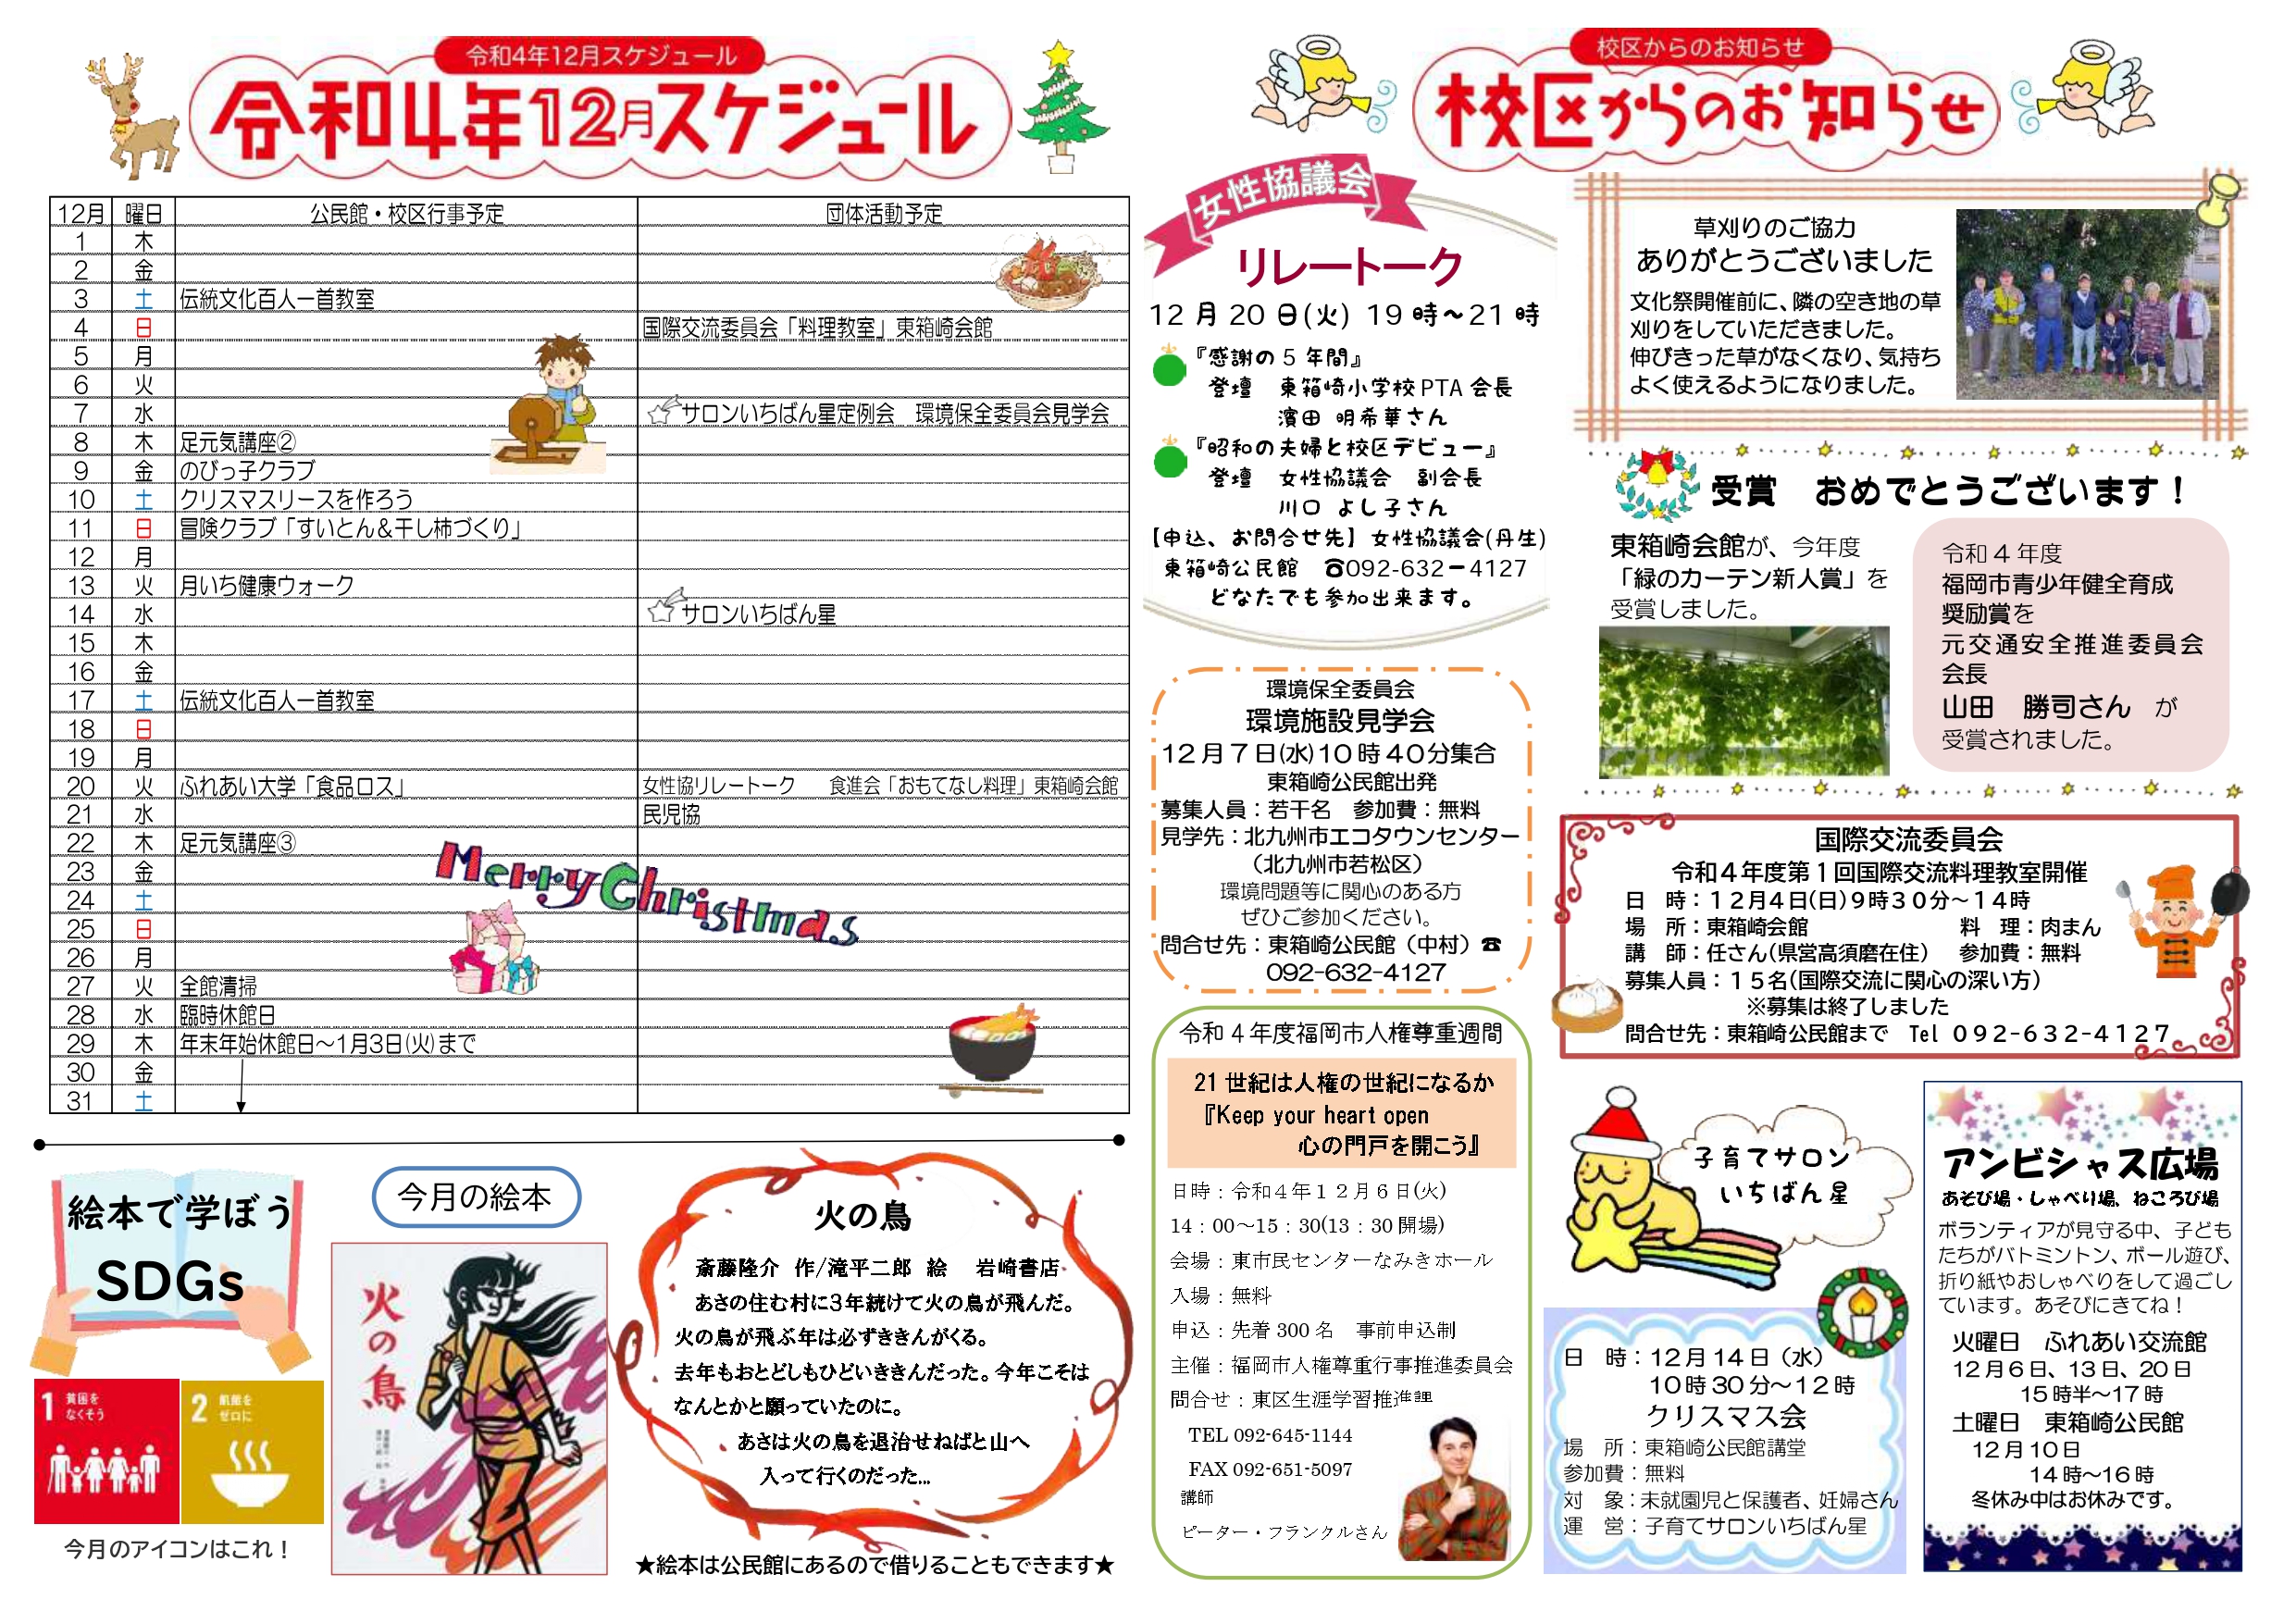 令和4年12月スケジュール
令和4年12月スケジュール
12月 曜日 公民館・校区行事予定 団体活動予定
1 木
2 金
3 土 伝統文化百人一首教室
4 日 国際交流委員会「料理教室」東箱崎会館
5 月
6 火
7 水 サロンいちばん星定例会 環境保全委員会見学会
8 木 足元気講座②
9 金 のびっ子クラブ
10 土 クリスマスリースを作ろう
11 日 冒険クラブ「すいとん&干し柿づくり」
12 月
13 火 月いち健康ウォーク
14 水 サロンいちばん星
15 木
16 金
17 土 伝統文化百人一首教室
18 日
19 月
20 火 ふれあい大学「食品ロス」 女性協リレートーク 食進会「おもてなし料理」東箱崎会館
21 水 民児協
22 木 足元気講座③
23 金
24 土
25 日
26 月
27 火 全館清掃
28 水 臨時休館日
29 木 年末年始休館日～1月3日(火)まで
30 金
31 土
Merry Christmas
絵本で学ぼう
SDGs
1 貧困をなくそう
2 飢餓をゼロに
今月のアイコンはこれ！
今月の絵本
火の鳥
火の鳥
斎藤隆介 作/滝平二郎 絵 岩崎書店
あさの住む村に3年続けて火の鳥が飛んだ。
火の鳥が飛ぶ年は必ずききんがくる。
去年もおとどしもひどいききんだった。今年こそは
なんとかと願っていたのに。
あさは火の鳥を退治せねばと山へ
入って行くのだった…
★絵本は公民館にあるので借りることもできます★
校区からのお知らせ
校区からのお知らせ
女性協議会
リレートーク
12月20日(火) 19時～21時
『感謝の5年間』
登壇 東箱崎小学校PTA会長
濱田 明希華さん
『昭和の夫婦と校区デビュー』
登壇 女性協議会 副会長
川口 よし子さん
【申込、お問合せ先】女性協議会(丹生)
東箱崎公民館 ☎092-632-4127
どなたでも参加出来ます。
環境保全委員会
環境施設見学会
12月7日(水)10時40分集合
東箱崎公民館出発
募集人員：若干名 参加費：無料
見学先：北九州市エコタウンセンター
（北九州市若松区）
環境問題等に関心のある方
ぜひご参加ください。
問合せ先：東箱崎公民館（中村）☎
092-632-4127
令和4年度福岡市人権尊重週間
21世紀は人権の世紀になるか
『Keep your heart open
心の門戸を開こう』
日時：令和4年12月6日(火)
14：00～15：30(13：30開場)
会場：東市民センターなみきホール
入場：無料
申込：先着300名 事前申込制
主催：福岡市人権尊重行事推進委員会
問合せ：東区生涯学習推進課
TEL 092-645-1144
FAX 092-651-5097
講師
ピーター・フランクルさん
草刈りのご協力
ありがとうございました
文化祭開催前に、隣の空き地の草
刈りをしていただきました。
伸びきった草がなくなり、気持ち
よく使えるようになりました。
受賞 おめでとうございます！
東箱崎会館が、今年度
「緑のカーテン新人賞」を
受賞しました。
令和4年度
福岡市青少年健全育成
奨励賞を
元交通安全推進委員会
会長
山田 勝司さん が
受賞されました。
国際交流委員会
令和4年度第1回国際交流料理教室開催
日 時：12月4日(日)9時30分～14時
場 所：東箱崎会館 料 理：肉まん
講 師：任さん(県営高須磨在住) 参加費：無料
募集人員：15名(国際交流に関心の深い方)
※募集は終了しました
問合せ先：東箱崎公民館まで Tel 092-632-4127
子育てサロン
いちばん星
日 時：12月14日（水）
10時30分～12時
クリスマス会
場 所：東箱崎公民館講堂
参加費：無料
対 象：未就園児と保護者、妊婦さん
運 営：子育てサロンいちばん星
アンビシャス広場
あそび場・しゃべり場、ねころび場
ボランティアが見守る中、子ども
たちがバトミントン、ボール遊び、
折り紙やおしゃべりをして過ごし
ています。あそびにきてね！
火曜日 ふれあい交流館
12月6日、13日、20日
15時半～17時
土曜日 東箱崎公民館
12月10日
14時～16時
冬休み中はお休みです。